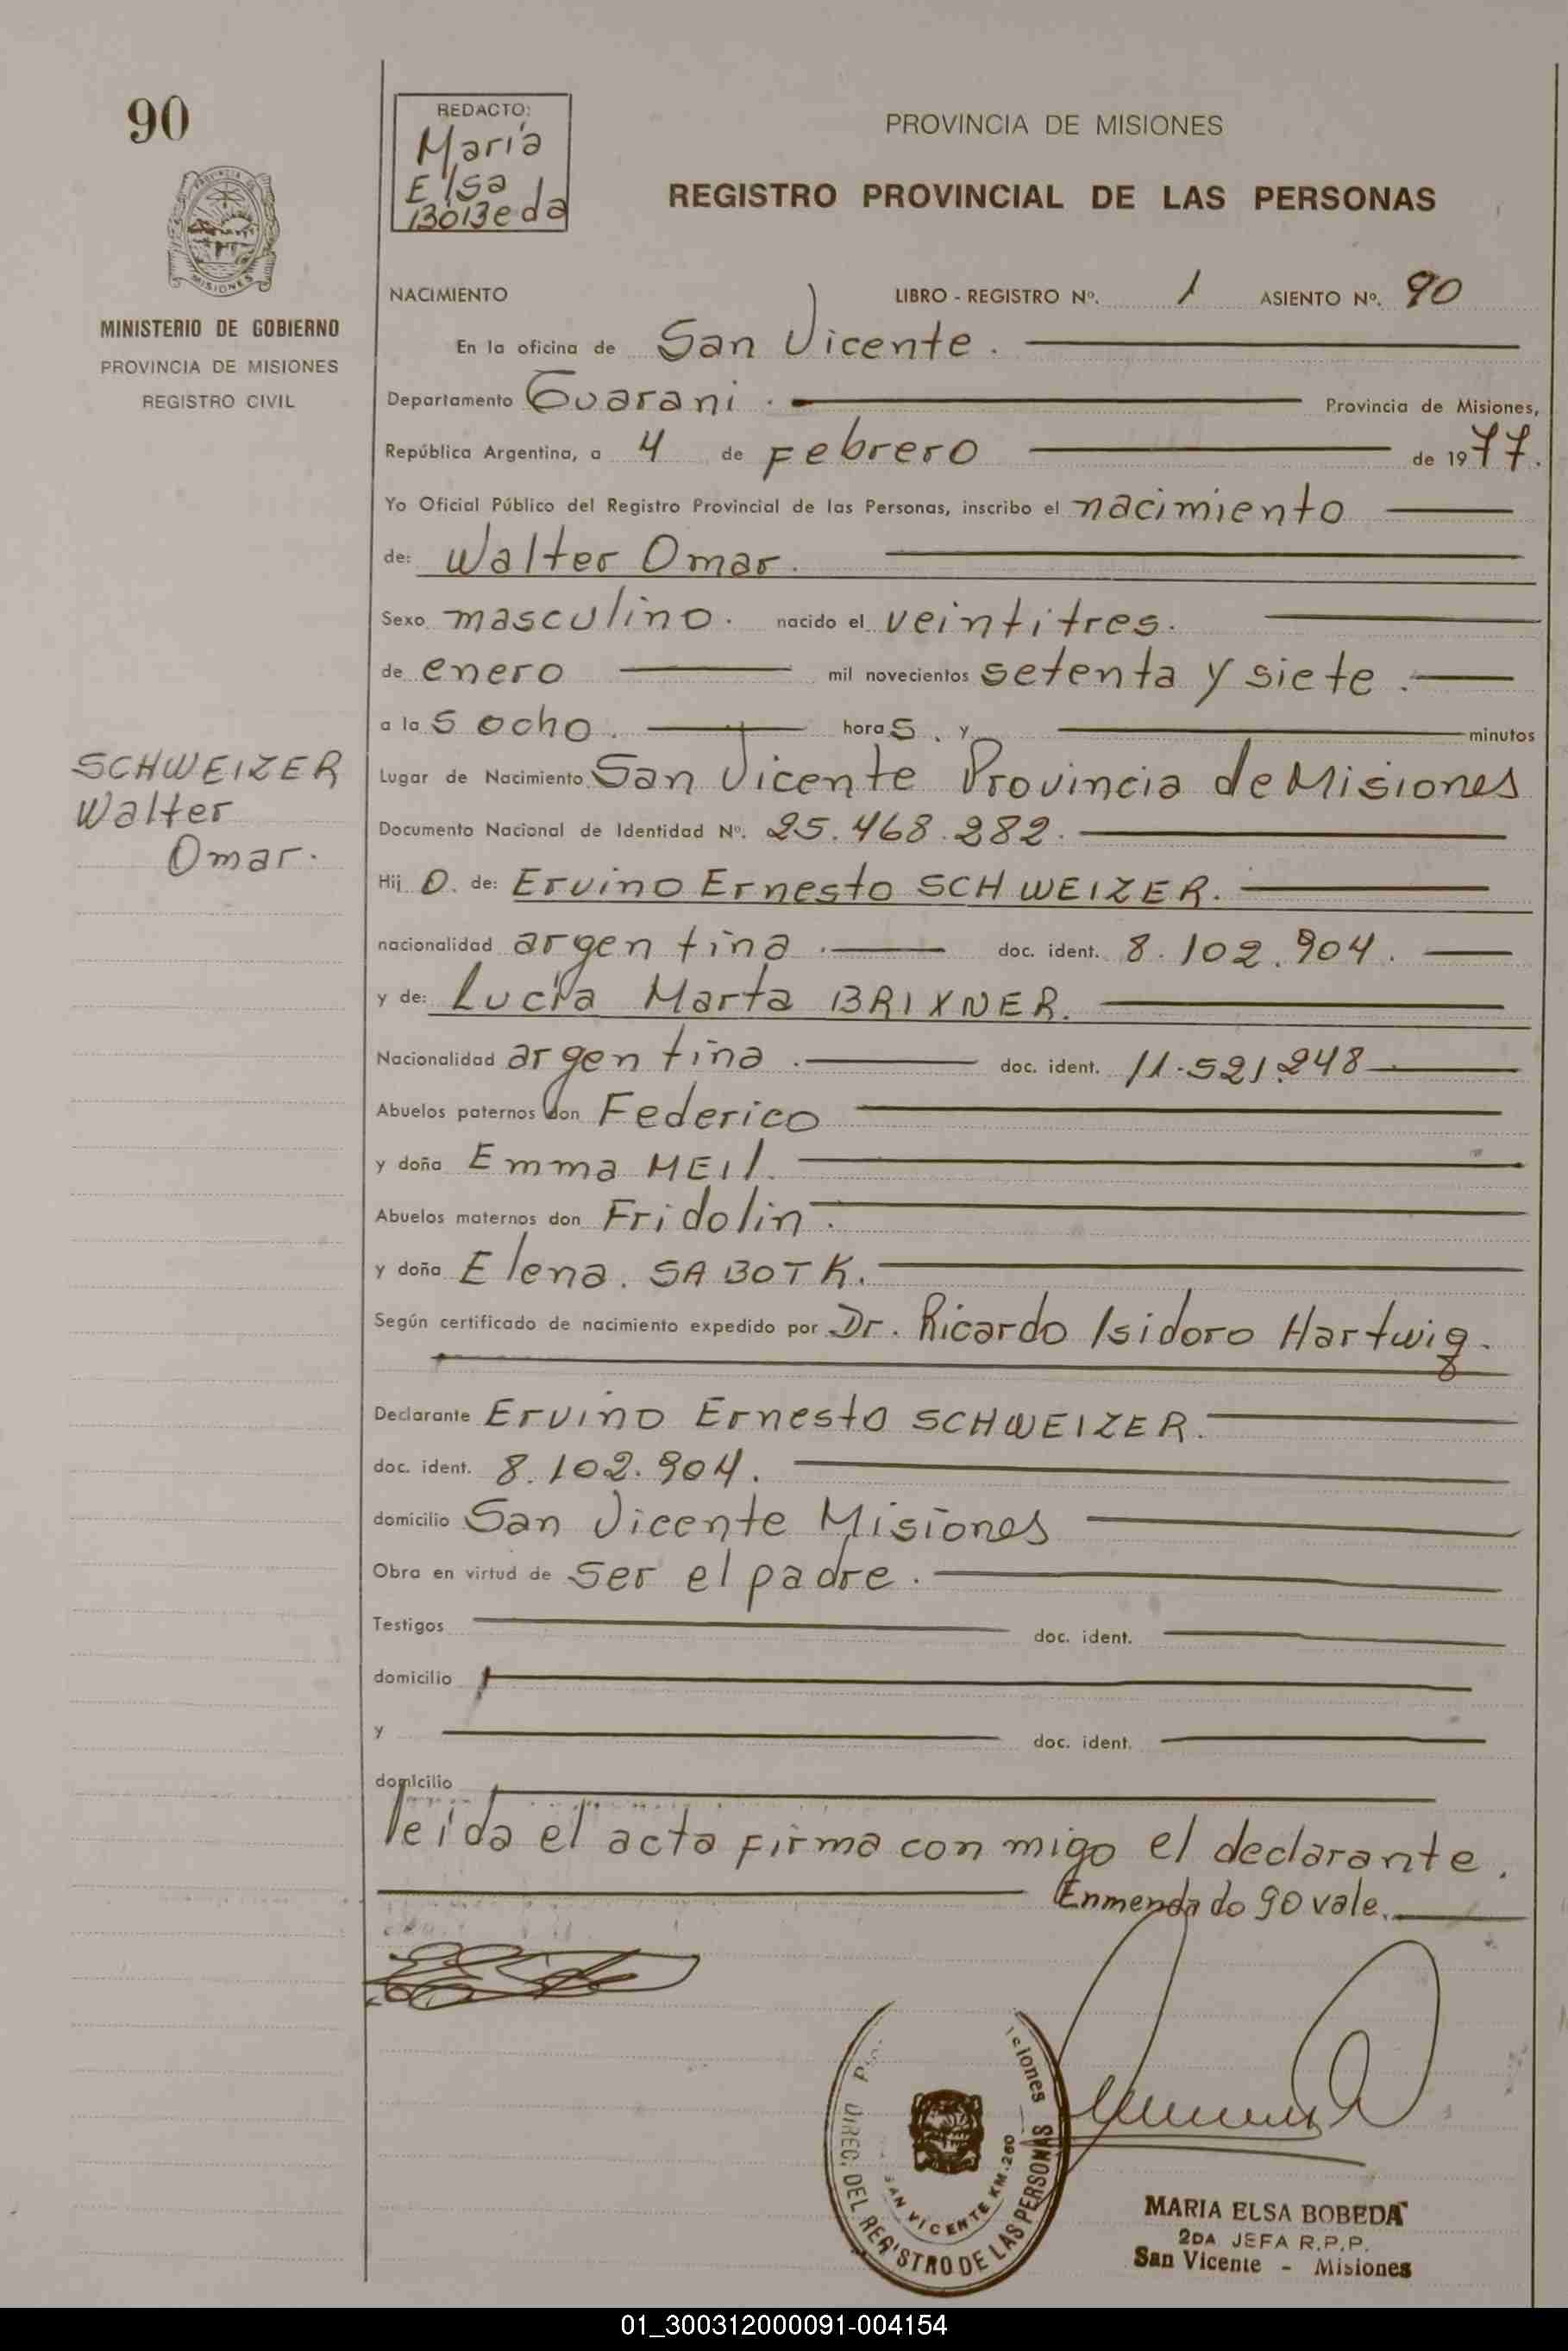 90
REDACTO:
María
Elsa
BoBeda
PROVINCIA DE MISIONES
REGISTRO PROVINCIAL DE LAS PERSONAS
MISIONES
MINISTERIO DE GOBIERNO
PROVINCIA DE MISIONES
REGISTRO CIVIL
NACIMIENTO LIBRO - REGISTRO Nº. 1 ASIENTO Nº. 90
En la oficina de San Vicente.
Departamento Guarani. Provincia de Misiones,
República Argentina, a 4 de Febrero de 1977.
Yo Oficial Público del Registro Provincial de las Personas, inscribo el nacimiento
de: Walter Omar.
Sexo masculino. nacido el veintitres.
de enero mil novecientos setenta y siete.
a las ocho. horas, y minutos
SCHWEIZER
Walter
Omar.
Lugar de Nacimiento San Vicente Provincia de Misiones
Documento Nacional de Identidad Nº. 25.468.282.
Hijo. de: Ervino Ernesto SCHWEIZER.
nacionalidad argentina. doc. ident. 8.102.904.
y de: Lucía Marta BRIXNER.
Nacionalidad argentina. doc. ident. 11.521.248
Abuelos paternos don Federico
y doña Emma MEIl.
Abuelos maternos don Fridolin.
y doña Elena. SABOTK.
Según certificado de nacimiento expedido por Dr. Ricardo Isidoro Hartwig.
Declarante Ervino Ernesto SCHWEIZER.
doc. ident. 8.102.904.
domicilio San Vicente Misiones
Obra en virtud de ser el padre.
Testigos doc. ident.
domicilio
y doc. ident.
domicilio
leida el acta firma con migo el declarante.
Enmendado 90 vale.
DIREC. DEL REGISTRO DE LAS PERSONAS
SAN VICENTE KM.260
MARIA ELSA BOBEDA
2DA JEFA R.P.P.
San Vicente - Misiones
01_300312000091-004154